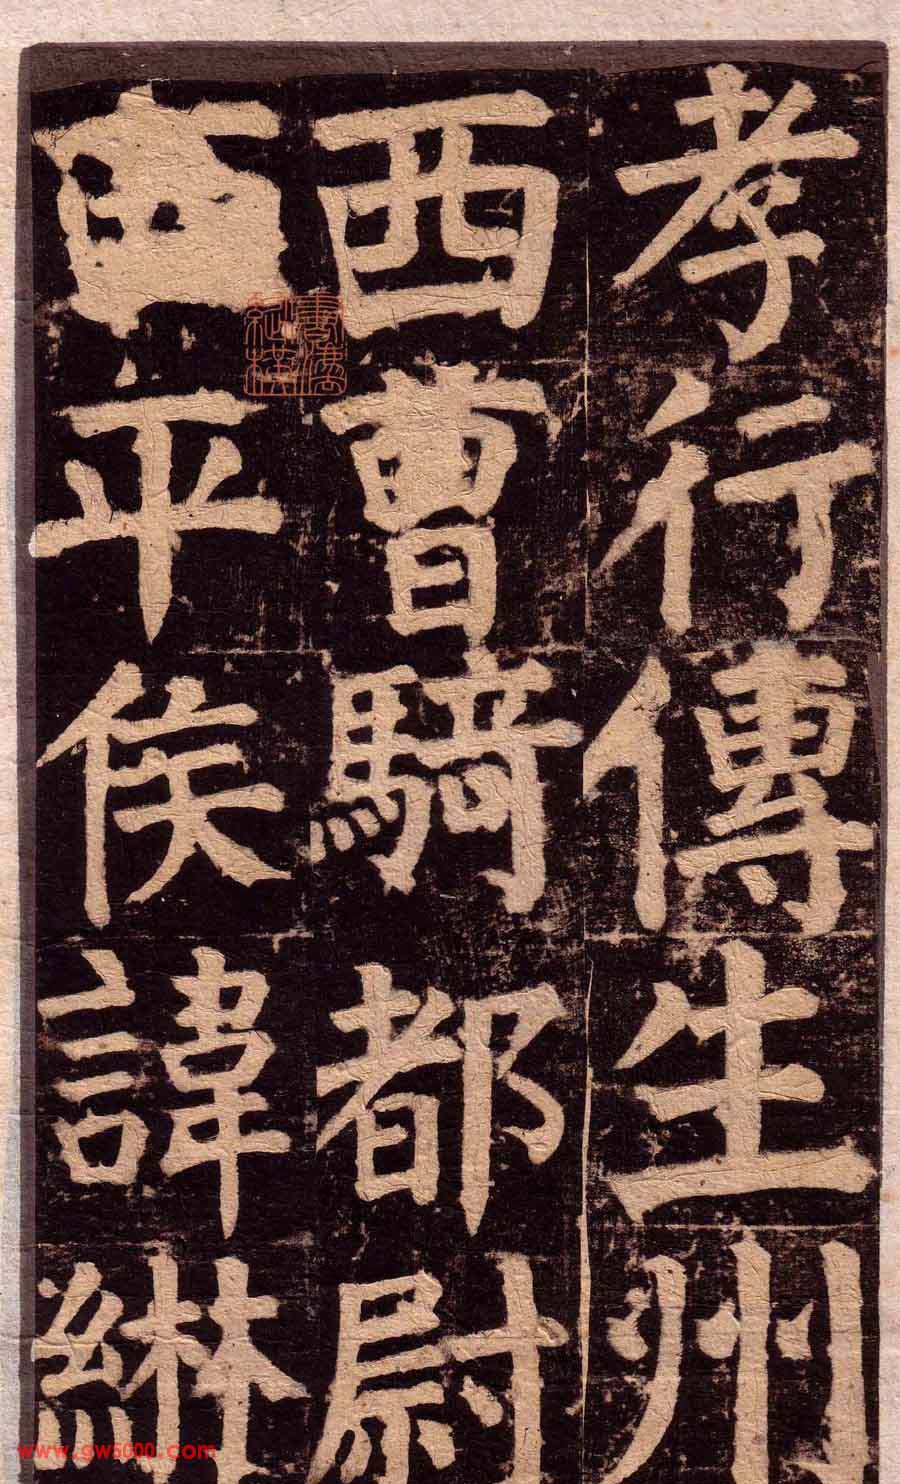 孝行傳生州
西曹騎都尉
西平侯諱綝
www.gw5000.com